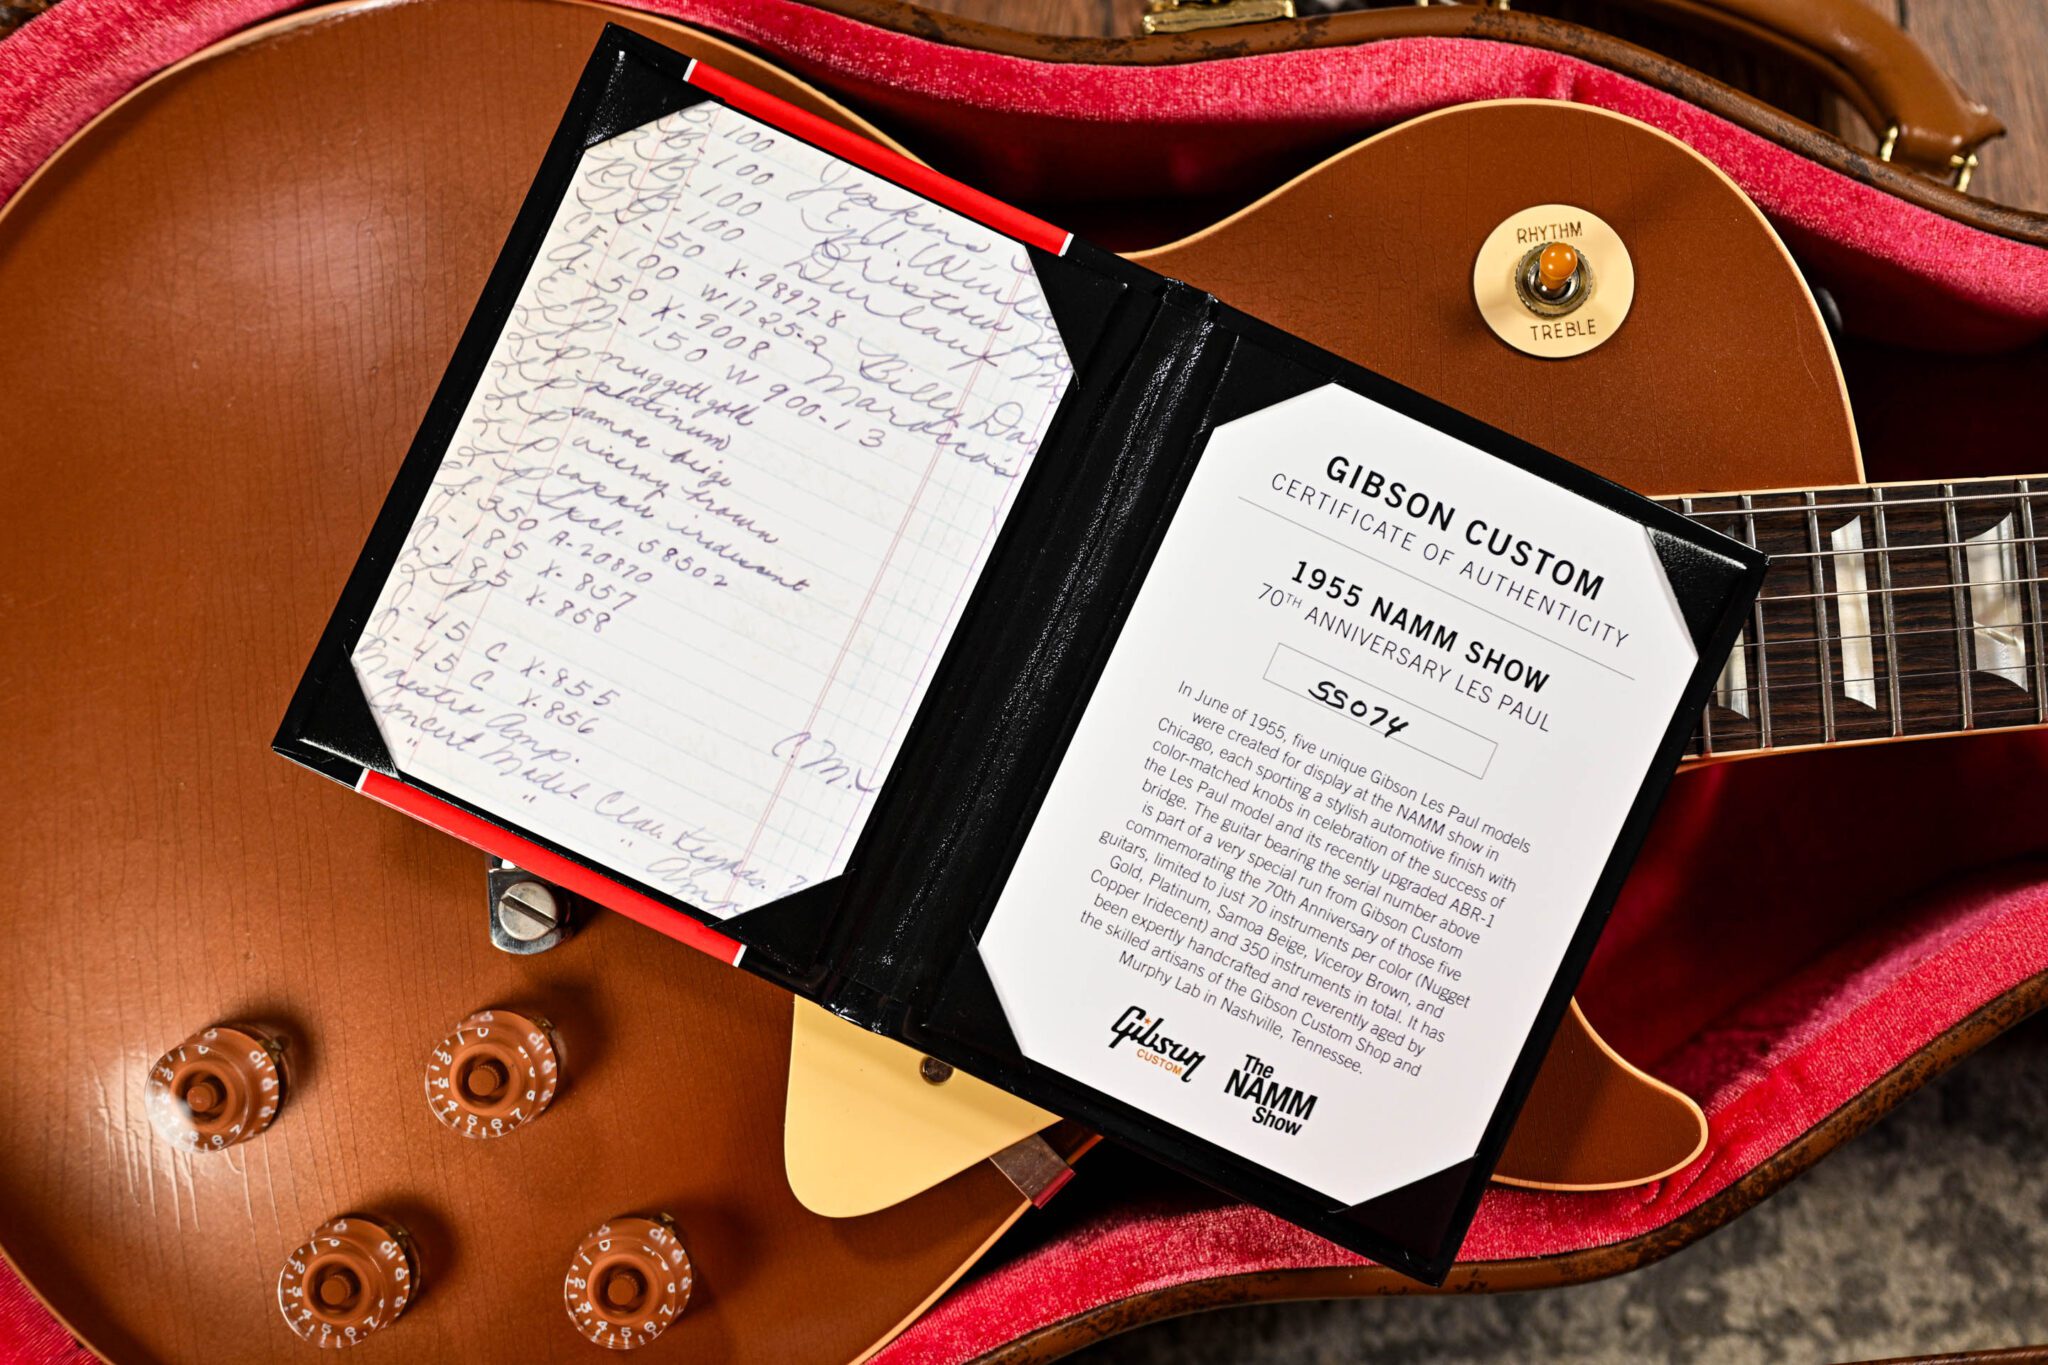 B-100 Jenkins
LB-100 E.U. Wurli
RB-100 Bristow
RB-100 Durlauf
-50 X-9897-8 Billy Da
CF-100 W1725-2 Marocco's
50 X-9008
EM-150 W900-13
Lp nuggett gold
Lp platinum
Lp samoe beige
Lp viceroy brown
Lp copper iridescent
Lp Spcl. 5850 2
350 A-20870
185 X-857
185 X-858
45 C X-855
45 C X-856
Maestro Amp. C.M.
Concert Model Clav. Keybds.
" " " Amp
GIBSON CUSTOM
CERTIFICATE OF AUTHENTICITY
1955 NAMM SHOW
70TH ANNIVERSARY LES PAUL
SS074
In June of 1955, five unique Gibson Les Paul models
were created for display at the NAMM show in
Chicago, each sporting a stylish automotive finish with
color-matched knobs in celebration of the success of
the Les Paul model and its recently upgraded ABR-1
bridge. The guitar bearing the serial number above
is part of a very special run from Gibson Custom
commemorating the 70th Anniversary of those five
guitars, limited to just 70 instruments per color (Nugget
Gold, Platinum, Samoa Beige, Viceroy Brown, and
Copper Iridecent) and 350 instruments in total. It has
been expertly handcrafted and reverently aged by
the skilled artisans of the Gibson Custom Shop and
Murphy Lab in Nashville, Tennessee.
Gibson
CUSTOM
The
NAMM
Show
RHYTHM
TREBLE